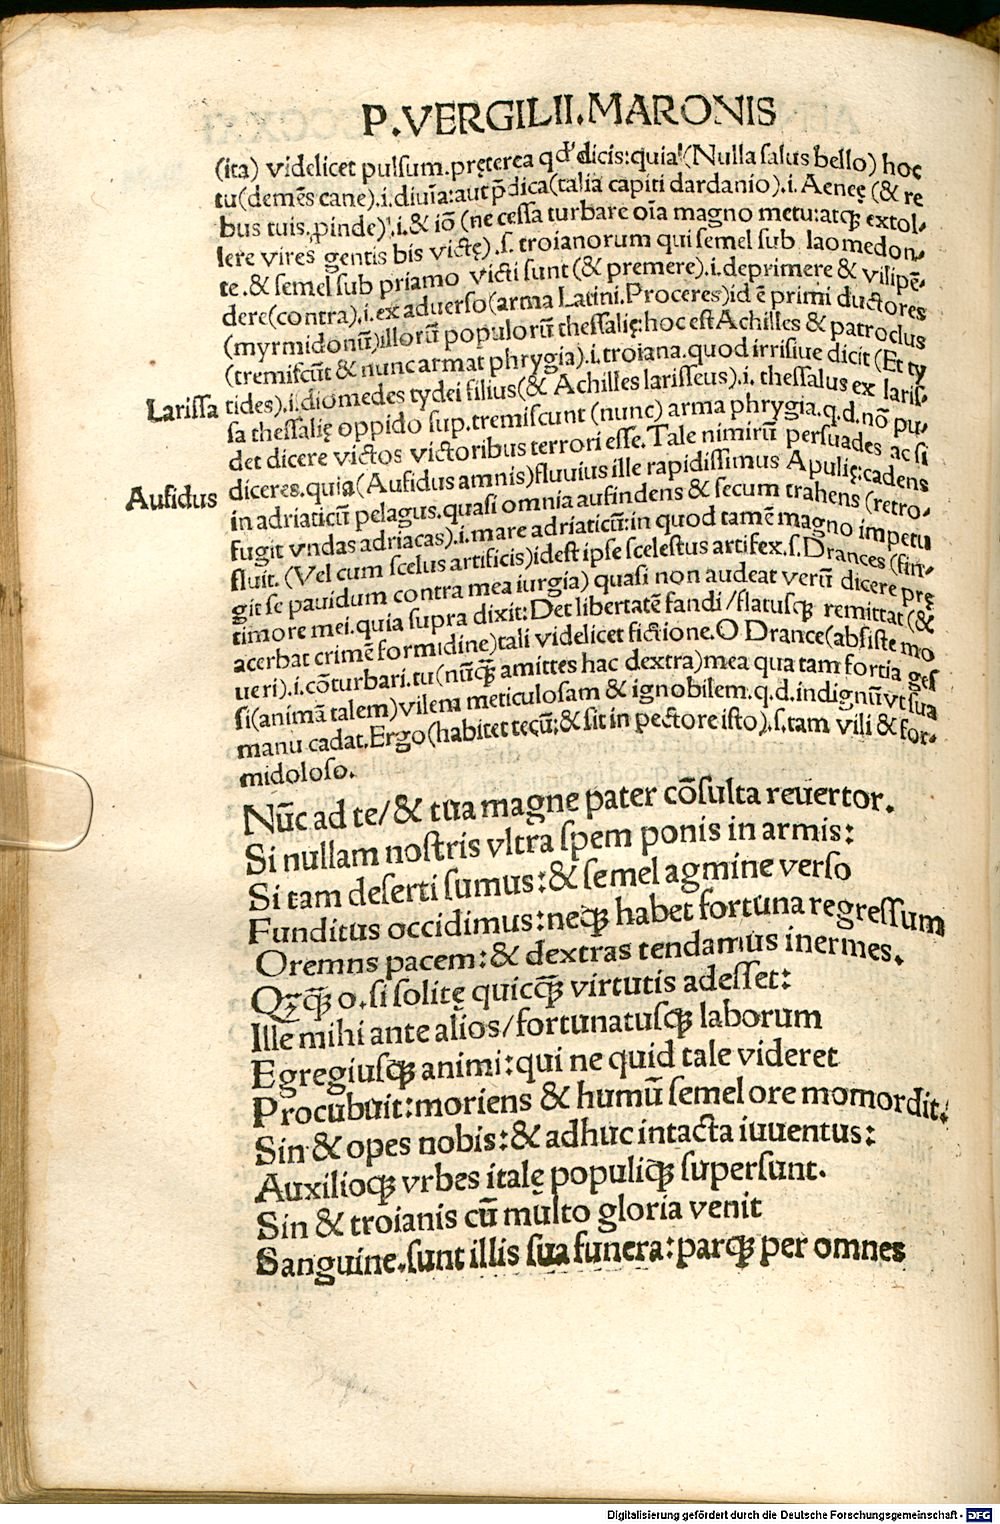 P.VERGILII.MARONIS
(ita) videlicet pulsum.pręterea qđ dicis:quia(Nulla salus bello) hoc
tu(demēs cane).i.diuīa:aut p̄dica(talia capiti dardanio).i.Aeneę (& re
bus tuis.pinde).i.& iō (ne cessa turbare oīa magno metu:atqꝫ extol-
lere vires gentis bis victę).s.troianorum qui semel sub laomedon-
te.& semel sub priamo victi sunt (& premere).i.deprimere & vilipē-
dere(contra).i.ex aduerso(arma Latini.Proceres)id ē primi ductores
(myrmidonū)illorū populorū thessalię:hoc est Achilles & patroclus
(tremiscūt & nunc armat phrygia).i.troiana.quod irrisiue dicit (Et ty
Larissa tides).i.diomedes tydei filius(& Achilles larisseus).i. thessalus ex laris-
sa thessalię oppido sup.tremiscunt (nunc) arma phrygia.q.d.nō pu-
det dicere victos victoribus terrori esse.Tale nimirū persuades ac si
Aufidus diceres.quia(Aufidus amnis)fluuius ille rapidissimus Apulię:cadens
in adriaticū pelagus.quasi omnia aufindens & secum trahens (retro-
fugit vndas adriacas).i.mare adriaticū:in quod tamē magno impetu
fluit. (Vel cum scelus artificis)idest ipse scelestus artifex.s.Drances (fin-
git se pauidum contra mea iurgia) quasi non audeat verū dicere prę
timore mei.quia supra dixit:Det libertatē fandi/flatusqꝫ remittat (&
acerbat crimē formidine)tali videlicet fictione.O Drance(absiste mo
ueri).i.cōturbari.tu(nūqꝫ amittes hac dextra)mea qua tam fortia ges
si(animā talem)vilem meticulosam & ignobilem.q.d.indignū vt sua
manu cadat.Ergo(habitet tecū:& sit in pectore isto).s.tam vili & for-
midoloso.
Nūc ad te/& tua magne pater cōsulta reuertor.
Si nullam nostris vltra spem ponis in armis:
Si tam deserti sumus:& semel agmine verso
Funditus occidimus:neqꝫ habet fortuna regressum
Oremns pacem:& dextras tendamus inermes.
Qꝫqꝫ o.si solitę quicqꝫ virtutis adesset:
Ille mihi ante alios/fortunatusqꝫ laborum
Egregiusqꝫ animi:qui ne quid tale videret
Procubuit:moriens & humū semel ore momordit.
Sin & opes nobis:& adhuc intacta iuuentus:
Auxilioqꝫ vrbes italę populiqꝫ supersunt.
Sin & troianis cū multo gloria venit
Sanguine.sunt illis sua funera:parqꝫ per omnes
Digitalisierung gefördert durch die Deutsche Forschungsgemeinschaft - DFG